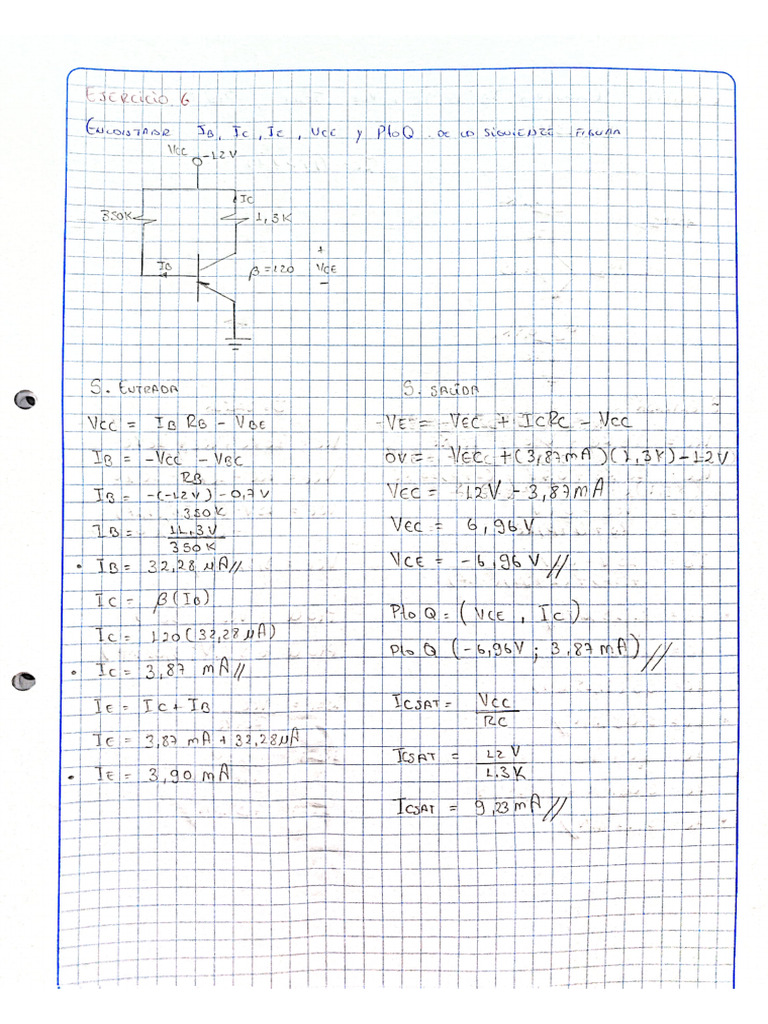 EJERCICIO 6
ENCONTRAR IB, IC, IE, VCC y Pto Q DE LA SIGUIENTE FIGURA
VCC -12V
IC
350K
1,3K
IB
β=120
+
VCE
-
S. ENTRADA
VCC = IB RB - VBE
IB = -VCC - VBC
RB
IB = -(-12V) - 0,7V
350K
IB = 11,3V
350K
• IB = 32,28 μA//
IC = β(IB)
IC = 120(32,28μA)
• IC = 3,87 mA//
IE = IC + IB
IE = 3,87 mA + 32,28μA
• IE = 3,90 mA
S. SALIDA
-VE = -VEC + ICRC - VCC
0V = -VEC + (3,87mA)(1,3K) - 12V
VEC = 12V - 3,87mA
VEC = 6,96V
VCE = -6,96V//
Pto Q = (VCE, IC)
Pto Q (-6,96V; 3,87mA)//
ICSAT = VCC
RC
ICSAT = 12V
1.3K
ICSAT = 9,23mA//